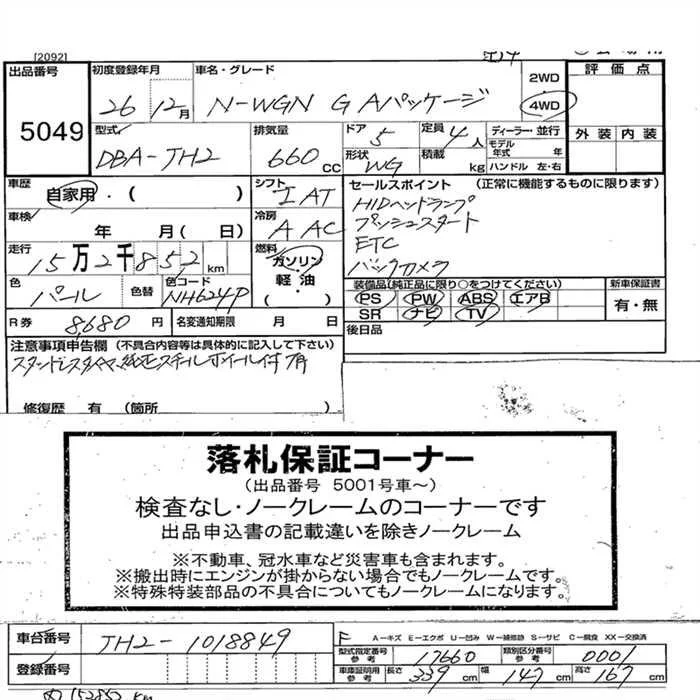 [2092]
出品番号 5049
初度登録年月 26 12月
車名・グレード N-WGN G Aパッケージ
2WD
4WD
評価点
外装 内装
型式 DBA-JH2
排気量 660 CC
ドア 5
定員 4人
形状 WG
積載 kg
ディーラー・並行
モデル年式 年
ハンドル 左・右
車歴 自家用・( )
シフト IAT
車検 年 月( 日)
冷房 AAC
走行 15万2千852 km
燃料 ガソリン・軽油・( )
色 パール
色替
色コード NH624P
R券 8,680円
名変通知期限 月 日
セールスポイント (正常に機能するものに限ります)
HIDヘッドランプ
プッシュスタート
ETC
バックカメラ
装備品(純正品に限り○をつけてください)
PS PW ABS エアB
SR ナビ TV
新車保証書
有・無
後日品
注意事項申告欄 (不具合内容等は具体的に記入して下さい)
スタッドレスタイヤ、純正スチールホイール付
修復歴 有 (箇所
落札保証コーナー
(出品番号 5001号車～)
検査なし・ノークレームのコーナーです
出品申込書の記載違いを除きノークレーム
※不動車、冠水車など災害車も含まれます。
※搬出時にエンジンが掛からない場合でもノークレームです。
※特殊特装部品の不具合についてもノークレームになります。
車台番号 JH2-1018849
登録番号
F A-キズ E-エクボ U-凹み W-補修跡 S-サビ C-腐食 XX-交換済
型式指定番号 参考 17660
類別区分番号 参考 0001
車庫証明用 参考 長さ 339cm 幅 147cm 高さ 167cm
152852 KM